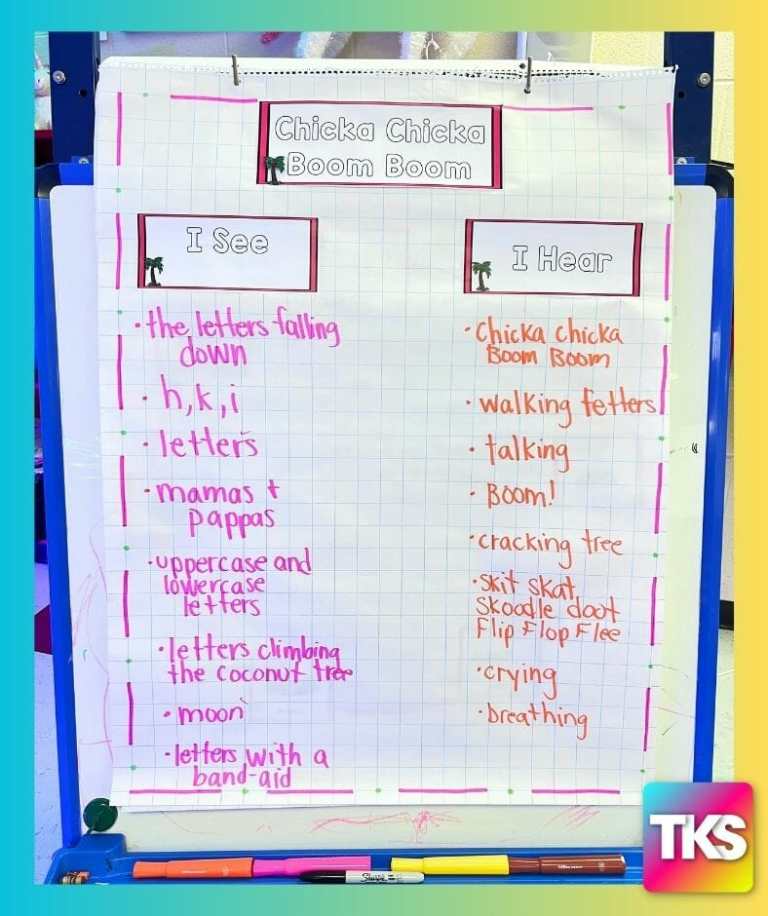 Chicka Chicka
Boom Boom
I See
· the letters falling
down
· h, k, i
· letters
· mamas +
pappas
· uppercase and
lowercase
letters
· letters climbing
the coconut tree
· moon
· letters with a
band-aid
I Hear
· Chicka chicka
Boom Boom
· walking fetters
· talking
· Boom!
· cracking tree
· skit skat
skoodle doot
Flip Flop Flee
· crying
· breathing
Sharpie
TKS